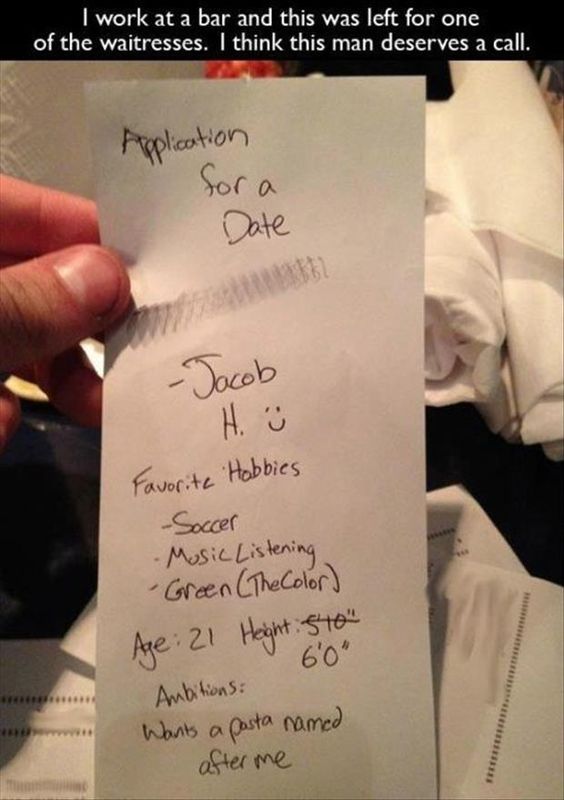 I work at a bar and this was left for one
of the waitresses. I think this man deserves a call.
Application
for a
Date
-Jacob
H. :)
Favorite Hobbies
-Soccer
- Music Listening
- Green (The Color)
Age: 21 Height: 5'10"
6'0"
Ambitions:
Wants a pasta named
after me